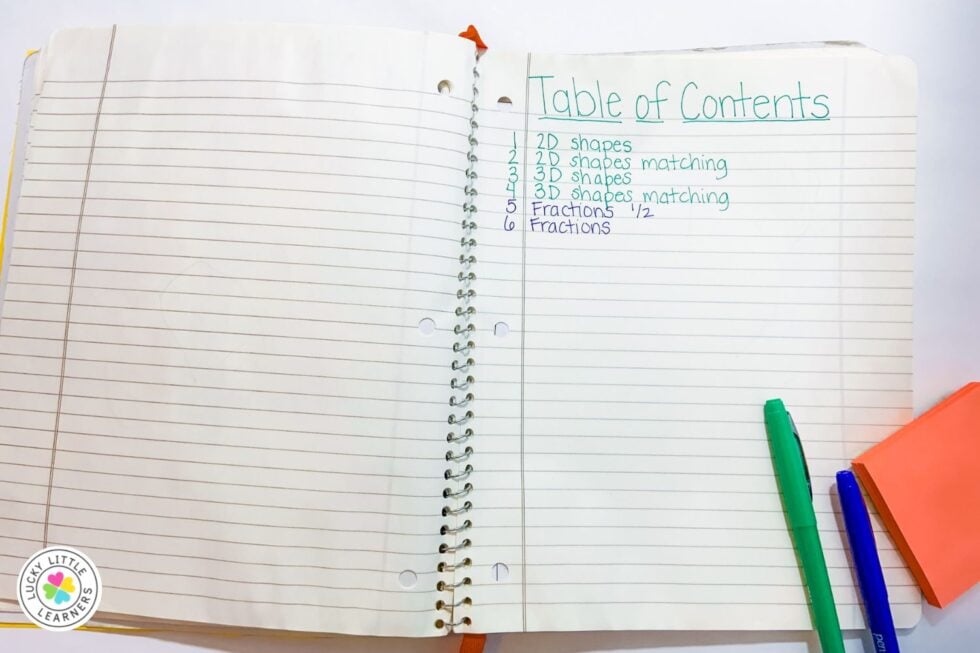 Table of Contents
1 2D shapes
2 2D shapes matching
3 3D shapes
4 3D shapes matching
5 Fractions 1/2
6 Fractions
LUCKY LITTLE LEARNERS